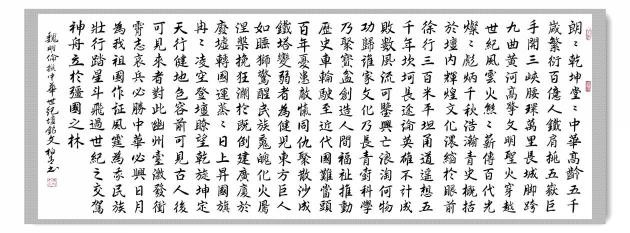 朗〻乾坤堂〻中華高齡五千
歲繁衍百億人鐵肩抱五嶽巨
手開三峽腰環萬里長城腳跨
九曲黃河高擎文明聖火穿越
世紀風雲火熊〻薪傳百代光
燦〻彪炳千秋浩瀚青史概括
於壇内輝煌文化濃縮於眼前
徐行三百米平坦甬道遥想五
千年坎坷長途論英雄不計成
敗數風流可鑒興亡浪淘何物
功歸誰家文化乃長青樹科學
乃聚寶盆創造人間福祉推動
歷史車輪駛至近代國難當頭
百年憂患敵愾同仇聚散沙成
鐵塔變弱者為健兒東方巨人
如睡獅驚醒民族魂魄化火鳳
涅槃挽狂瀾於既倒建廣廈於
廢墟轉國運蒸〻日上昇國旗
冉〻凌空登壇瞭望乾旋坤定
天行健地包容前可見古人後
可見來者對此幽州臺激發衝
霄志哀兵必勝中華必興日月
為我祖國作証風霆為吾民族
壯行踏星斗飛過世紀之交駕
神舟立於强國之林
魏明倫撰中華世紀壇銘文